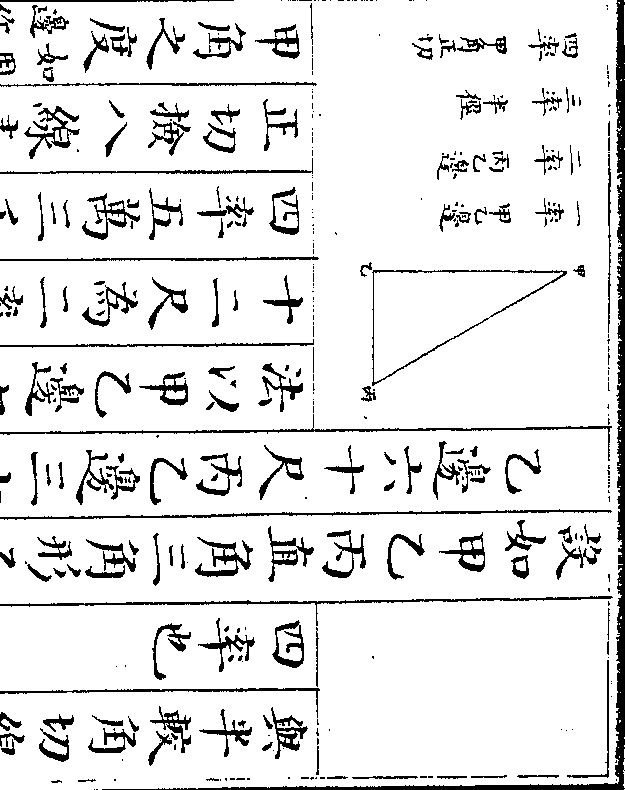 與半較角切線
四率也
設如甲乙丙直角三角形乙
乙邊六十尺丙乙邊三十
法以甲乙邊
十二尺為二率
四率五萬三千
正切檢八線表
甲角之度
如用
邊作
一率 甲乙邊
二率 丙乙邊
三率 半徑
四率 甲角正切
甲
乙
丙